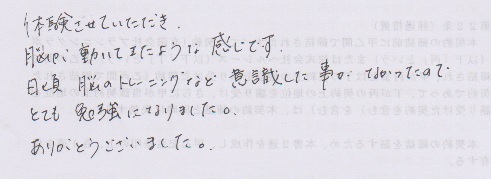 体験させていただき、
脳が動いてきたような感じです。
日頃 脳のトレーニングなど 意識した事がなかったので
とても 勉強になりました。
ありがとうございました。